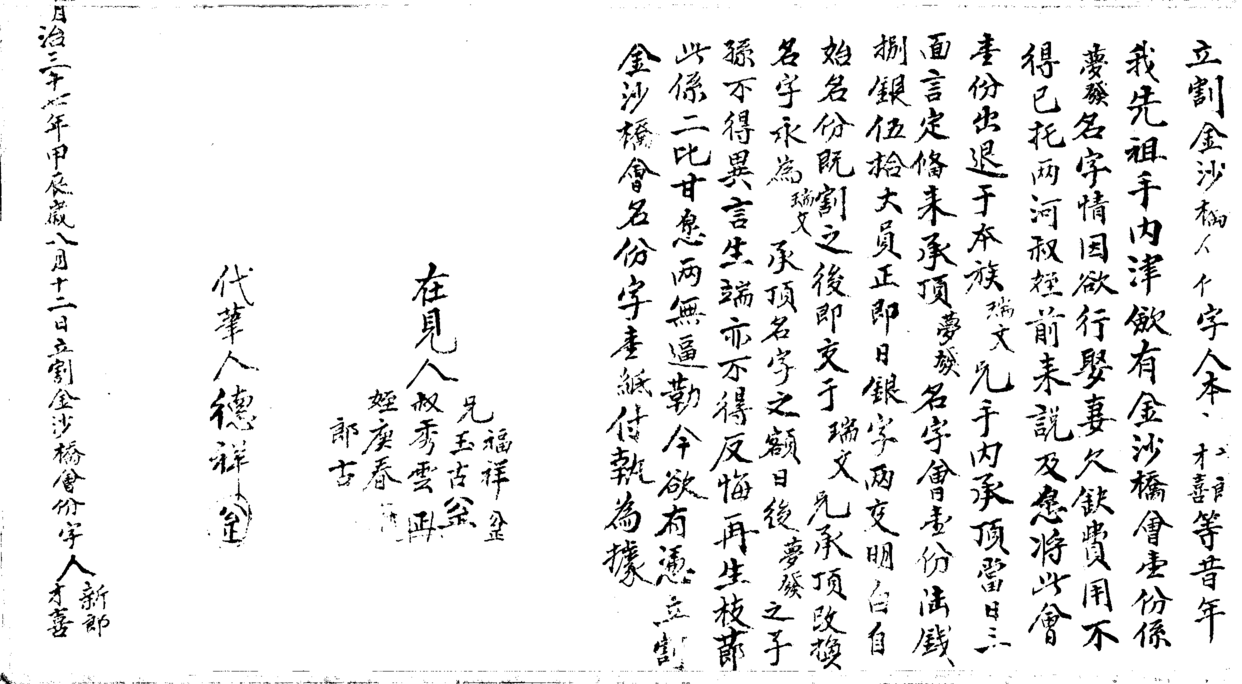 立割金沙橋人 字人本 才喜等昔年
我先祖手内津斂有金沙橋會壹份係
夢發名字情因欲行娶妻欠缺費用不
得已托两河叔姪前来説及愿将此會
壹份出退于本族瑞文兄手内承頂當日三
面言定俻来承頂夢發名字會壹份法銭
捌銀伍拾大員正即日銀字两交明白自
始名份既割之後即交于瑞文兄承頂改換
名字永為瑞文承頂名字之額日後夢發之子
孫不得異言生端亦不得反悔再生枝莭
此係二比甘愿两無逼勒今欲有憑立割
金沙橋會名份字壹紙付執為據
福祥
兄玉古
在見人叔秀雲
姪庚春
郎古
代筆人德祥
治三十七年甲辰歳八月十二日立割金沙橋會份字人新郎
才喜